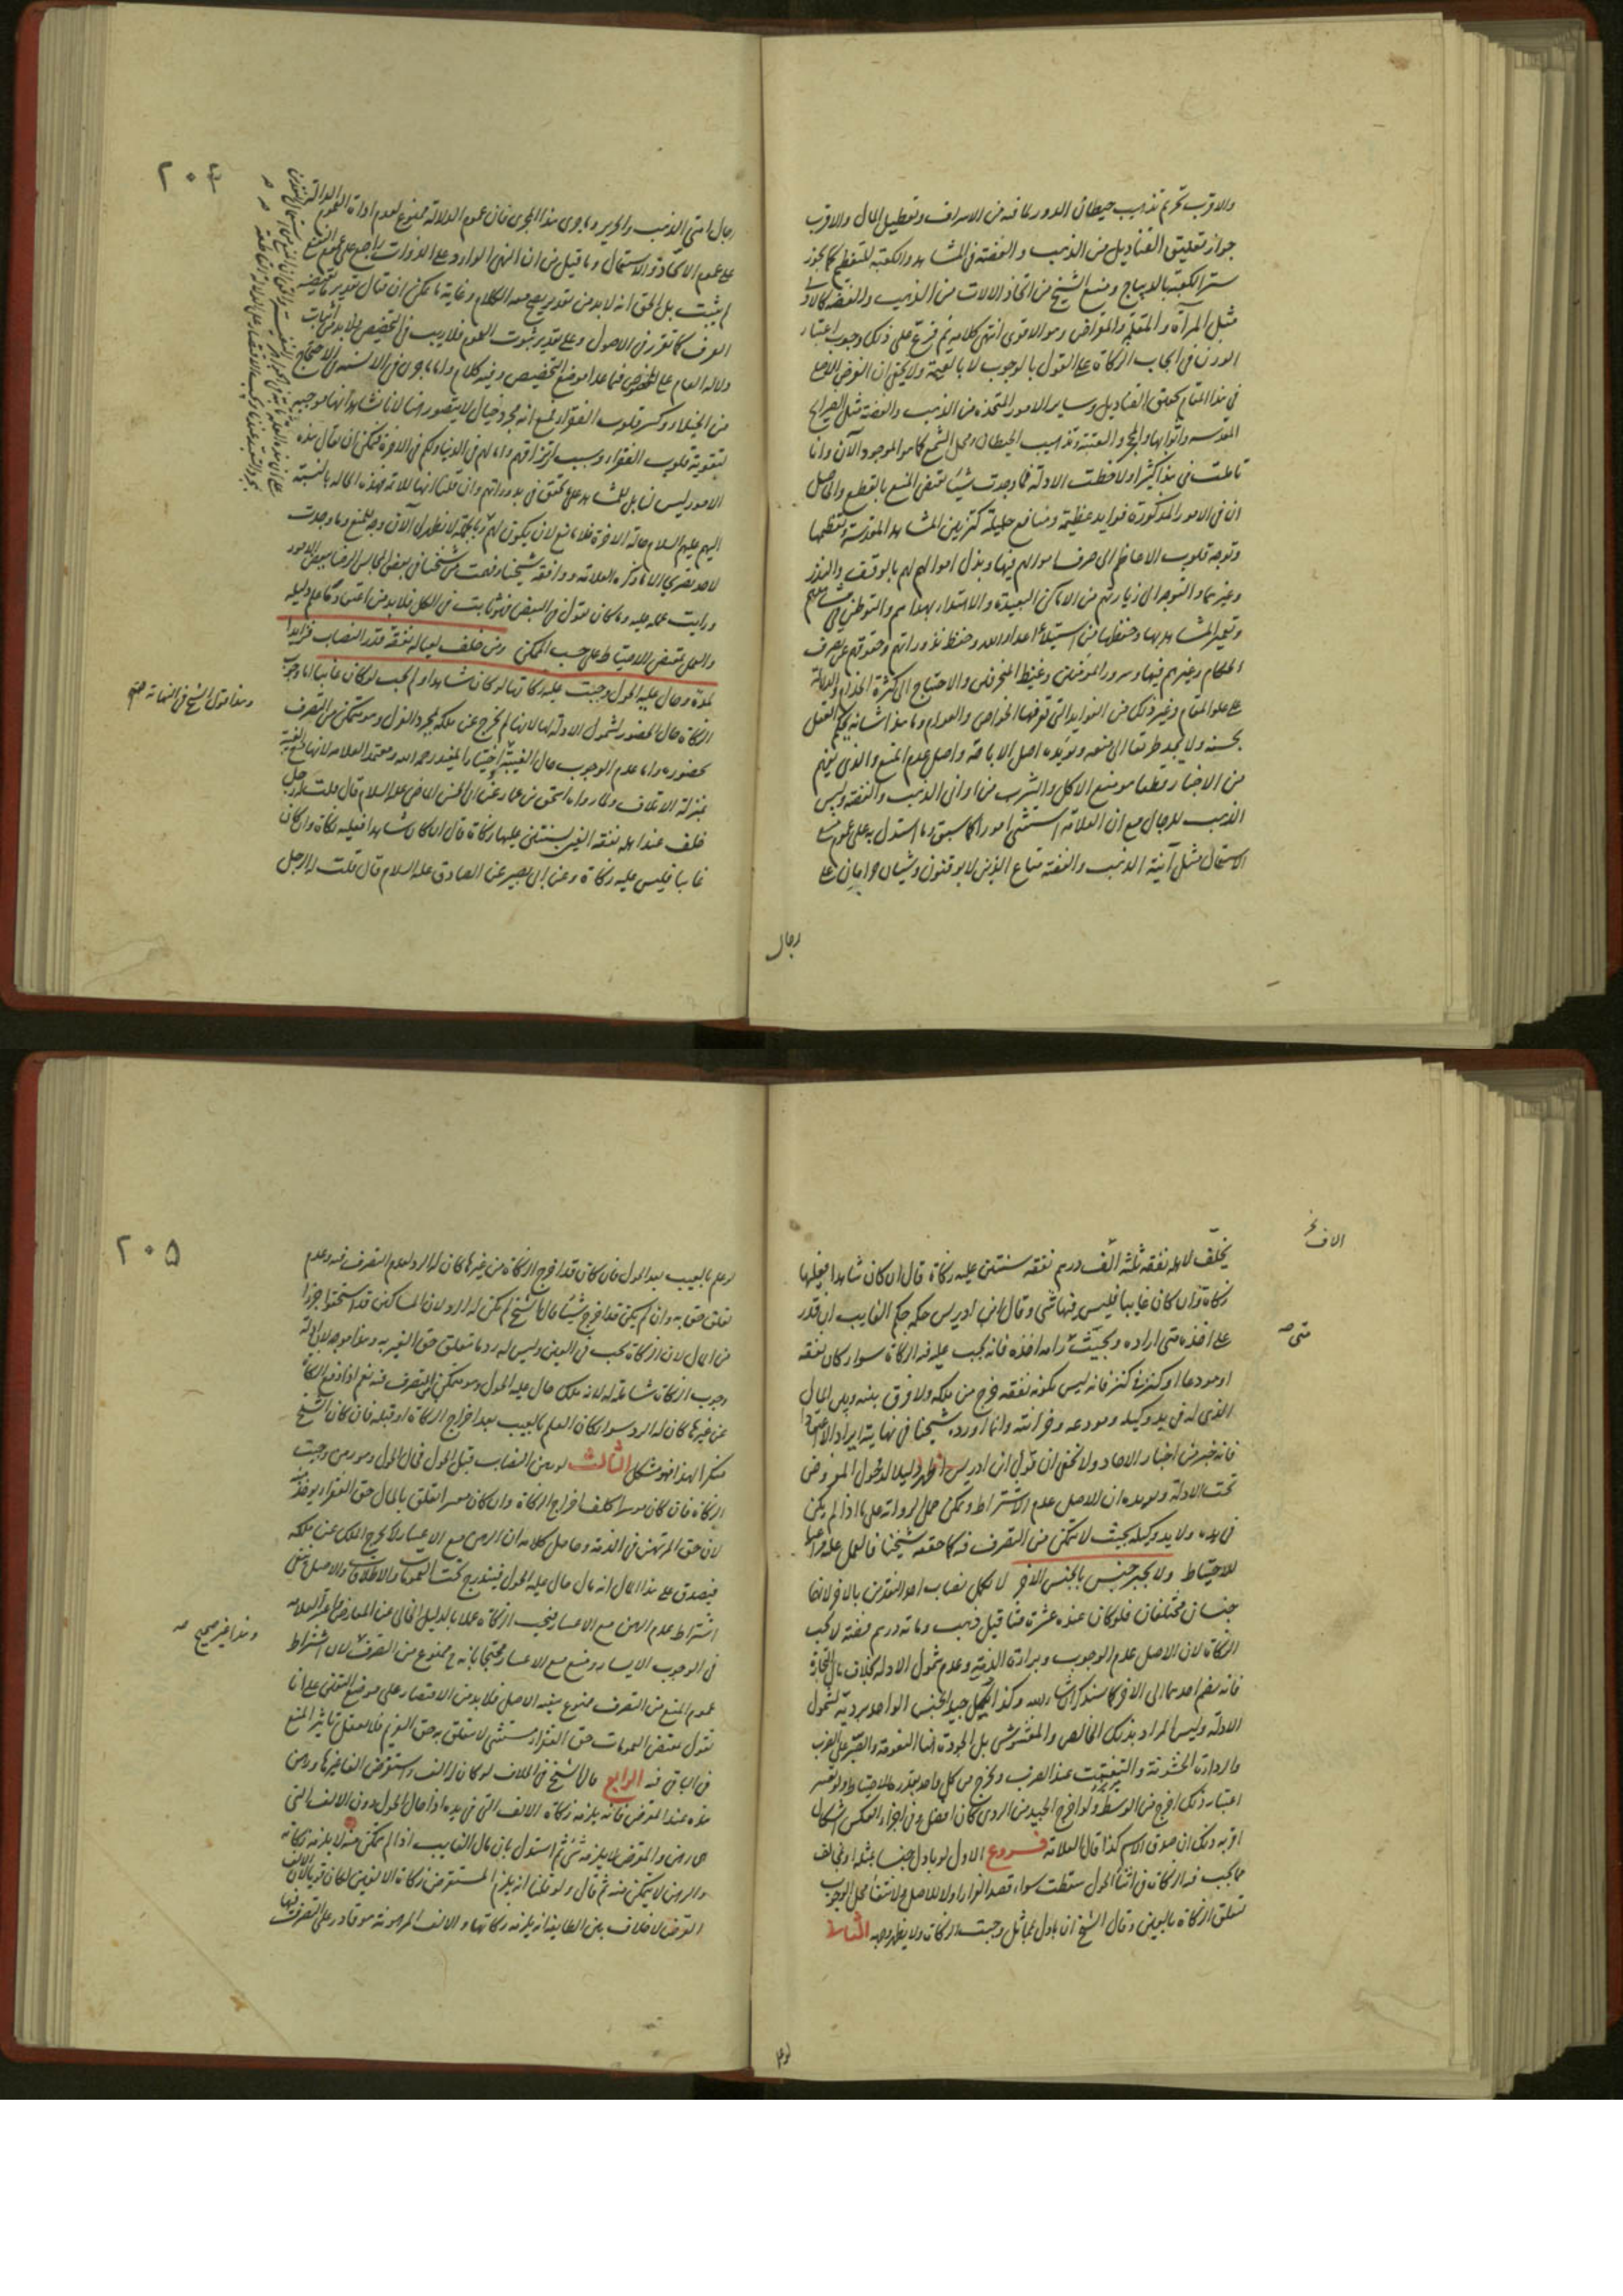 والاقرب تحريم تذهيب حيطان الدور لما فيه من الاسراف وتعطيل المال والاقرب
جواز تعليق القناديل من الذهب والفضة في المشاهد والكعبة للتعظيم كما يجوز
ستر الكعبة بالديباج ومنع الشيخ من اتخاذ الالات من الذهب والفضة
مثل المرآة والمقراض وهو الاقوى انتهى كلامه ثم فرع على ذلك وجوب اعتبار
الوزن في ايجاب الزكاة على القول بالوجوب لا بالقيمة ولا يخفى ان الغرض
في هذا المقام تحقيق القناديل وساير الامور المتخذه من الذهب والفضة مثل
المقدسه وابوابها والعتبة وتذهيب الحيطان ومحل الشمع كما هو الموجود الآن وانا
تاملت في هذا كثيرا ولاحظت الادلة فما وجدت شيئا يقتضى المنع بالقطع والحاصل
ان في الامور المذكورة فوايد عظيمة ومنافع جليلة كتزيين المشاهد المقدسة وتعظيمها
وتوجه قلوب الاعاظم الى صرف اموالهم فيها وبذل اموالهم لهم بالوقف والنذر
وغيرهما والتوجه الى زيارتهم من الاماكن البعيدة والاستمداد بهم والتوطن في
وتعمير المشاهد بها وحفظها من استيلاء اعداء الله وحفظ نذوراتهم وحقوقهم عن تصرف
الحكام وغيرهم فيها وسرور المؤمنين وغيظ المنحرفين والاحتياج الى كثرة الخدام والدلالة
على علو المقام وغير ذلك من الفوايد التي تعرفها الخواص والعوام وما هذا شانه يحكم العقل
بحسنه ولا يجد طريقا الى منعه ويؤيده اصل الاباحة واصل عدم المنع والذى يفهم
من الاخبار قطعا هو منع الاكل والشرب من اوانى الذهب والفضة ولبس
الذهب للرجال مع ان العلامة استثنى امورا كما سبق وما استدل به على عموم
الاستعمال مثل آنية الذهب والفضة متاع الذين لا يوقنون
رجال
٢٠٤
رجال امتى الذهب والحرير وما جرى هذا المجرى فان عموم الدلالة ممنوع لعدم اداة العموم
على عموم الاتخاذ والاستعمال وما قيل من ان النهى الوارد على الذوات راجع على عموم
لم يثبت بل الحق انه لا بد من تقدير يصح معه الكلام وغاية ما يمكن ان يقال تقدير ما يقتضيه
العرف كما تقرر في الاصول وعلى تقدير ثبوت العموم فلا ريب في التخصيص
دلالة العام على فيما عدا موضع التخصيص وفيه كلام واما ما جرى في الالسنة من الاحتجاج
من الخيلاء وكسر قلوب الفقراء فمع انه مجرد خيال لا يتصور هنا لانا نشاهد انها موجبة
لتقوية قلوب الفقراء وسبب ارتزاقهم وانها لهم في الدنيا ولكم في الاخرة فيمكن ان يقال هذه
الامور ليس
اليهم عليهم السلام حالة الاخرة فلا مانع لان يكون لهم وبالجملة لا يظهر لى الآن وجه للمنع وما وجدت
لاحد تصريحا الا ما ذكره العلامة ووافقه شيخنا وفهمت من شيخنا في بعض المجالس الرضا ببعض الامور
ورايت عمله عليه وما كان يقول في البعض فهو ثابت في الكل فلا بد من اعتماد كل على دليله
والعمل بمقتضى الاحتياط على حسب الممكن ومن خلف لعياله نفقة قدر النصاب فزايدا
لمدة وحال عليه الحول وجبت عليه زكاتها لو كان شاهدا ولم يجب لو كان غايبا اما وجوب
الزكاة حال الحضور لشمول الادلة لها لانها لم يخرج عن ملكه بمجرد العزل وهو متمكن من التصرف
بحضوره واما عدم الوجوب حال الغيبة اختيار المفيد رحمه الله ومعتمد العلامة لانها مع الغيبة
بمنزلة الاتلاف ولما رواه اسحق بن عمار عن ابى الحسن الماضى عليه السلام قال قلت له رجل
خلف عند اهله نفقة الفين لسنتين عليها زكاة قال ان كان شاهدا فعليه زكاة وان كان
غايبا فليس عليه زكاة وعن ابى بصير عن الصادق عليه السلام قال قلت له الرجل
وهذا قول الشيخ في النهاية
يخلف لاهله نفقة ثلثة الف درهم نفقة سنتين عليه زكاة قال ان كان شاهدا فعليها
زكاة وان كان غايبا فليس فيها شى وقال ابن ادريس حكمه حكم الغايب ان قدر
على اخذه متى اراده وبحيث رامه اخذه فانه يجب عليه فيه الزكاة سواء كان نفقه
او مودعا او كنزه في كنز فانه ليس بكونه نفقة خرج من ملكه ولا فرق بينه وبين المال
الذى له في يد وكيله ومودعه وخزانته وانما اورده شيخنا في نهايته ايرادا لا اعتقادا
فانه خبر من اخبار الاحاد ولا يخفى ان قول ابن ادريس اظهر دليلا لدخول المفروض
تحت الادلة ويؤيده ان الاصل عدم الاشتراط ويمكن حمل الرواية على ما اذا لم يكن
في يده ولا يد وكيله بحيث لا يتمكن من التصرف فيه كما حققه شيخنا فالعمل عليه
للاحتياط ولا يجبر جنس بالجنس الاخر لا يكمل نصاب احد النقدين بالاخر لانها
جنسان مختلفان فلو كان عنده عشرة مثاقيل ذهب وماية درهم فضة لا يجب
الزكاة لان الاصل عدم الوجوب وبراءة الذمة وعدم شمول الادلة بخلاف مال التجارة
فانه يضم احدهما الى الاخر كما سنذكر ان شاء الله وكذا يكمل جيد الجنس الواحد برديه لشمول
الادلة وليس المراد بذلك الخالص والمغشوش بل الجودة هنا النعومة
والرداءة الخشونة والتفتت عند الضرب ويخرج من كل واحد بقدره للاحتياط ولو تعسر
اعتبار ذلك اخرج من الوسط ولو اخرج الجيد من الردى كان افضل وفي اجزاء العكس اشكال
اقربه ذلك ان صدق الاسم كذا قال العلامة فروع الاول لو بادل جنسا بمثله او مخالف
مما يجب فيه الزكاة في اثناء الحول سقطت سواء قصد الفرار اولا للاصل ولانتفاء محل الوجوب
لتعلق الزكاة بالعين وقال الشيخ ان بادل بمماثل وجبت الزكاة ولا يظهر وجهه الثانى
الاف
متى
لو علم
٢٠٥
لو علم بالعيب بعد الحول فان كان قد اخرج الزكاة من غيرها كان له الرد لعدم التصرف فيه وعدم
تعلق حق به وان لم يكن قد اخرج شيئا قال الشيخ لم يكن له الرد لان المساكين قد استحقوا جزءا
من المال لان الزكاة يجب في العين وليس له رد ما تعلق حق الغير به وهذا موجه لان ادلة
وجوب الزكاة شاملة له لانه ملك حال عليه الحول وهو متمكن من التصرف فيه نعم اذا دفع الزكاة
من غيرها كان له الرد سواء كان العلم بالعيب بعد اخراج الزكاة او قبله فان كان الشيخ
منكرا لهذا فهو مشكل الثالث لو رهن النصاب قبل الحول فحال الحول وهو رهن وجبت
الزكاة فان كان موسرا كلف اخراج الزكاة وان كان معسرا تعلق بالمال حق الفقراء يؤخذ منه
لان حق المرتهن في الذمة وحاصل كلامه ان الرهن مع الاعسار لا يخرج الملك عن ملكه
فيصدق على هذا المال انه مال حال عليه الحول فيندرج تحت العمومات والاطلاقات والاصل
اشتراط عدم الرهن مع الاعسار فيجب الزكاة عملا بالدليل الخالى عن المعارض
في الوجوب الايسار ومنع مع الاعسار محتجا بانه ممنوع من التصرف لان اشتراط
عموم المنع من التصرف ممنوع بعينه الاصل فلا بد من الاقتصار على موضع اليقين على انا
نقول بمقتضى العمومات حق الفقراء مستثنى لا يتعلق به حق الغريم فلا يعقل تاثير المنع
في الباقى فيه الرابع قال الشيخ في الخلاف لو كان له الف واستقرض الفا غيرها ورهن
هذه عند المقرض فانه يلزمه زكاة الالف التى في يده اذا حال الحول دون الالف التى
هى رهن والمقرض لا يلزمه شى ثم استدل بان مال الغايب اذا لم يتمكن منه لا يلزمه زكاته
والرهن لا يتمكن منه ثم قال ولو قلنا انه يلزم المستقرض زكاة الالفين لكان قويا لان الالف
القرض لا خلاف بين الطايفة انه يلزمه زكاتها والالف المرهونة هو قادر على التصرف فيها
وهذا غير صحيح